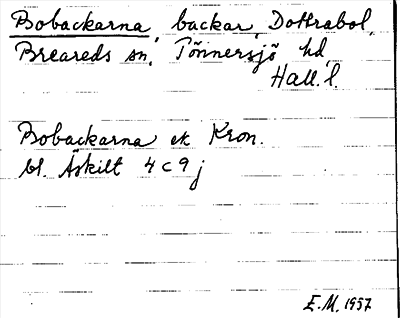 Bobackarna, backar, Dottrabol,
Breareds sn, Tönnersjö hd,
Hall. l.
Bobackarna ek Kron.
bl. Äskilt 4 c 9 j
E.M. 1957